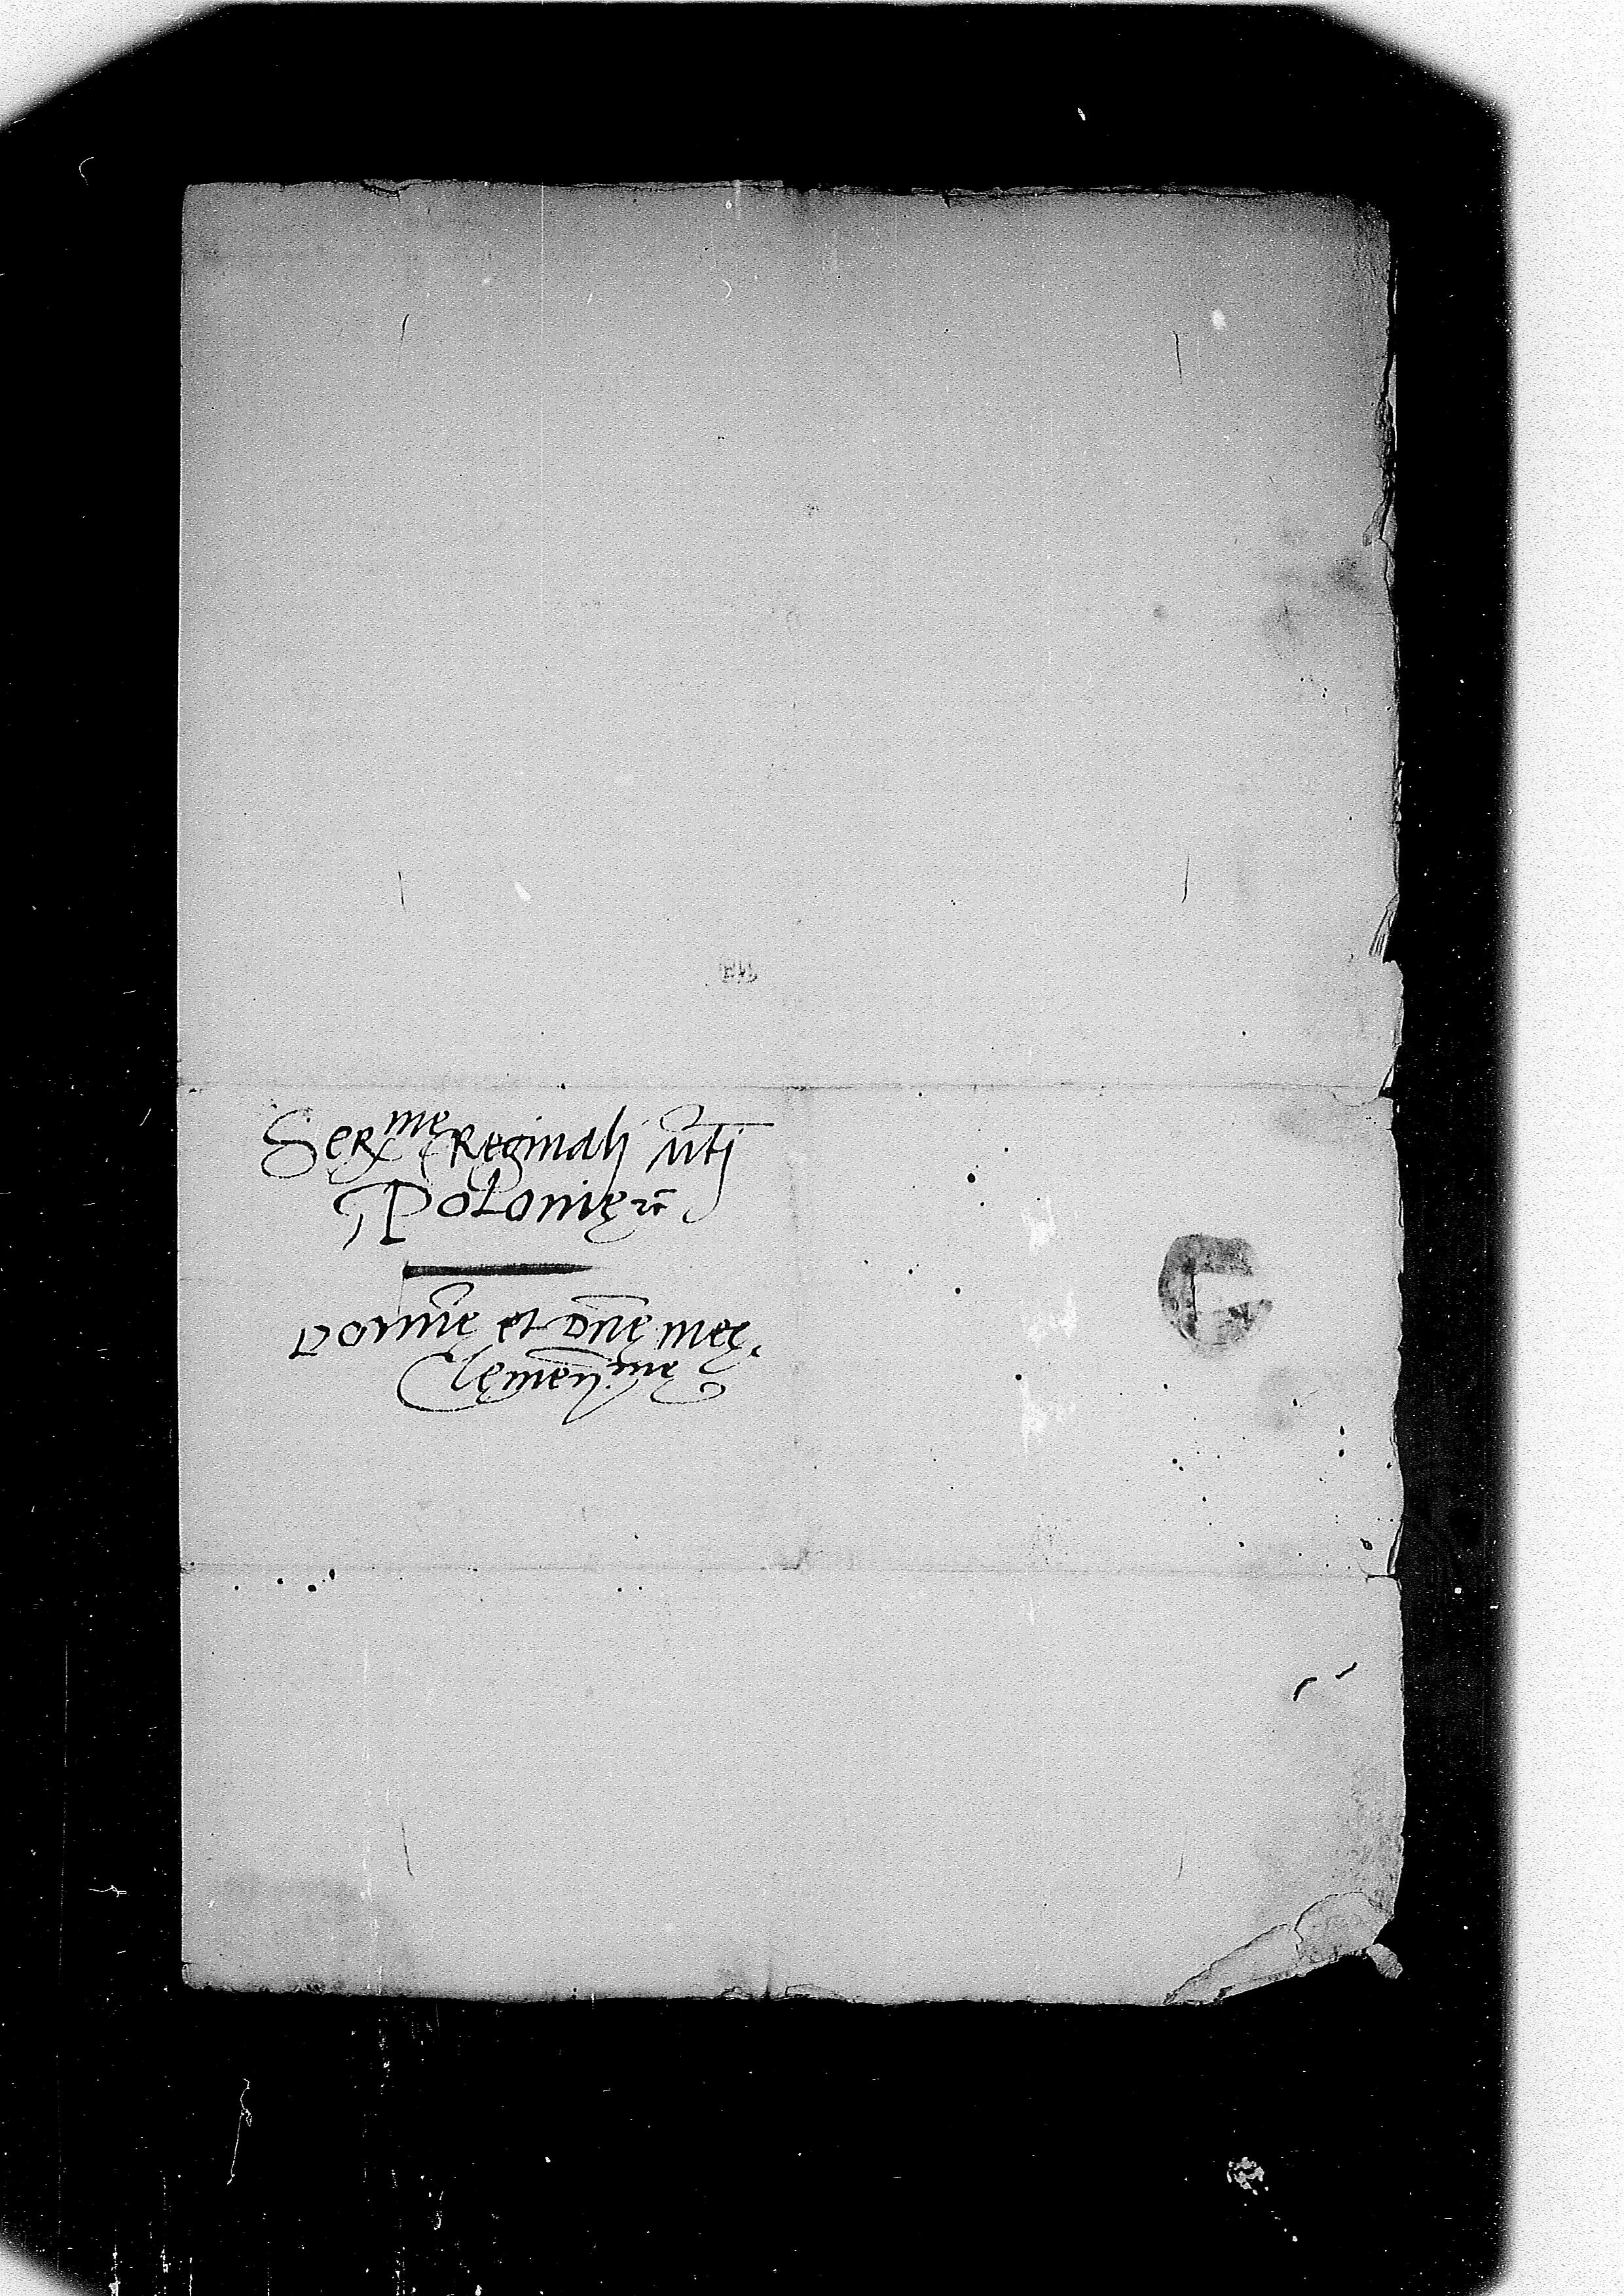 Ser^me Reginali Mti
Polonię etc
Domine et Dne meę
Clemen^me